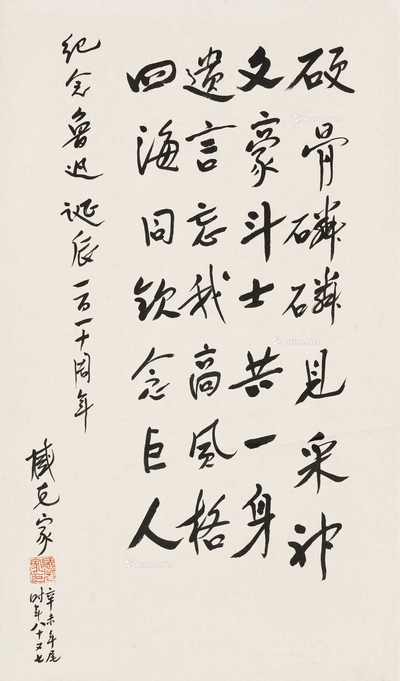 硕骨磷磷见采神
文豪斗士共一身
遗言忘我高风格
四海同钦念巨人
纪念鲁迅诞辰一百一十周年
臧克家
辛未年尾
时年八十又七